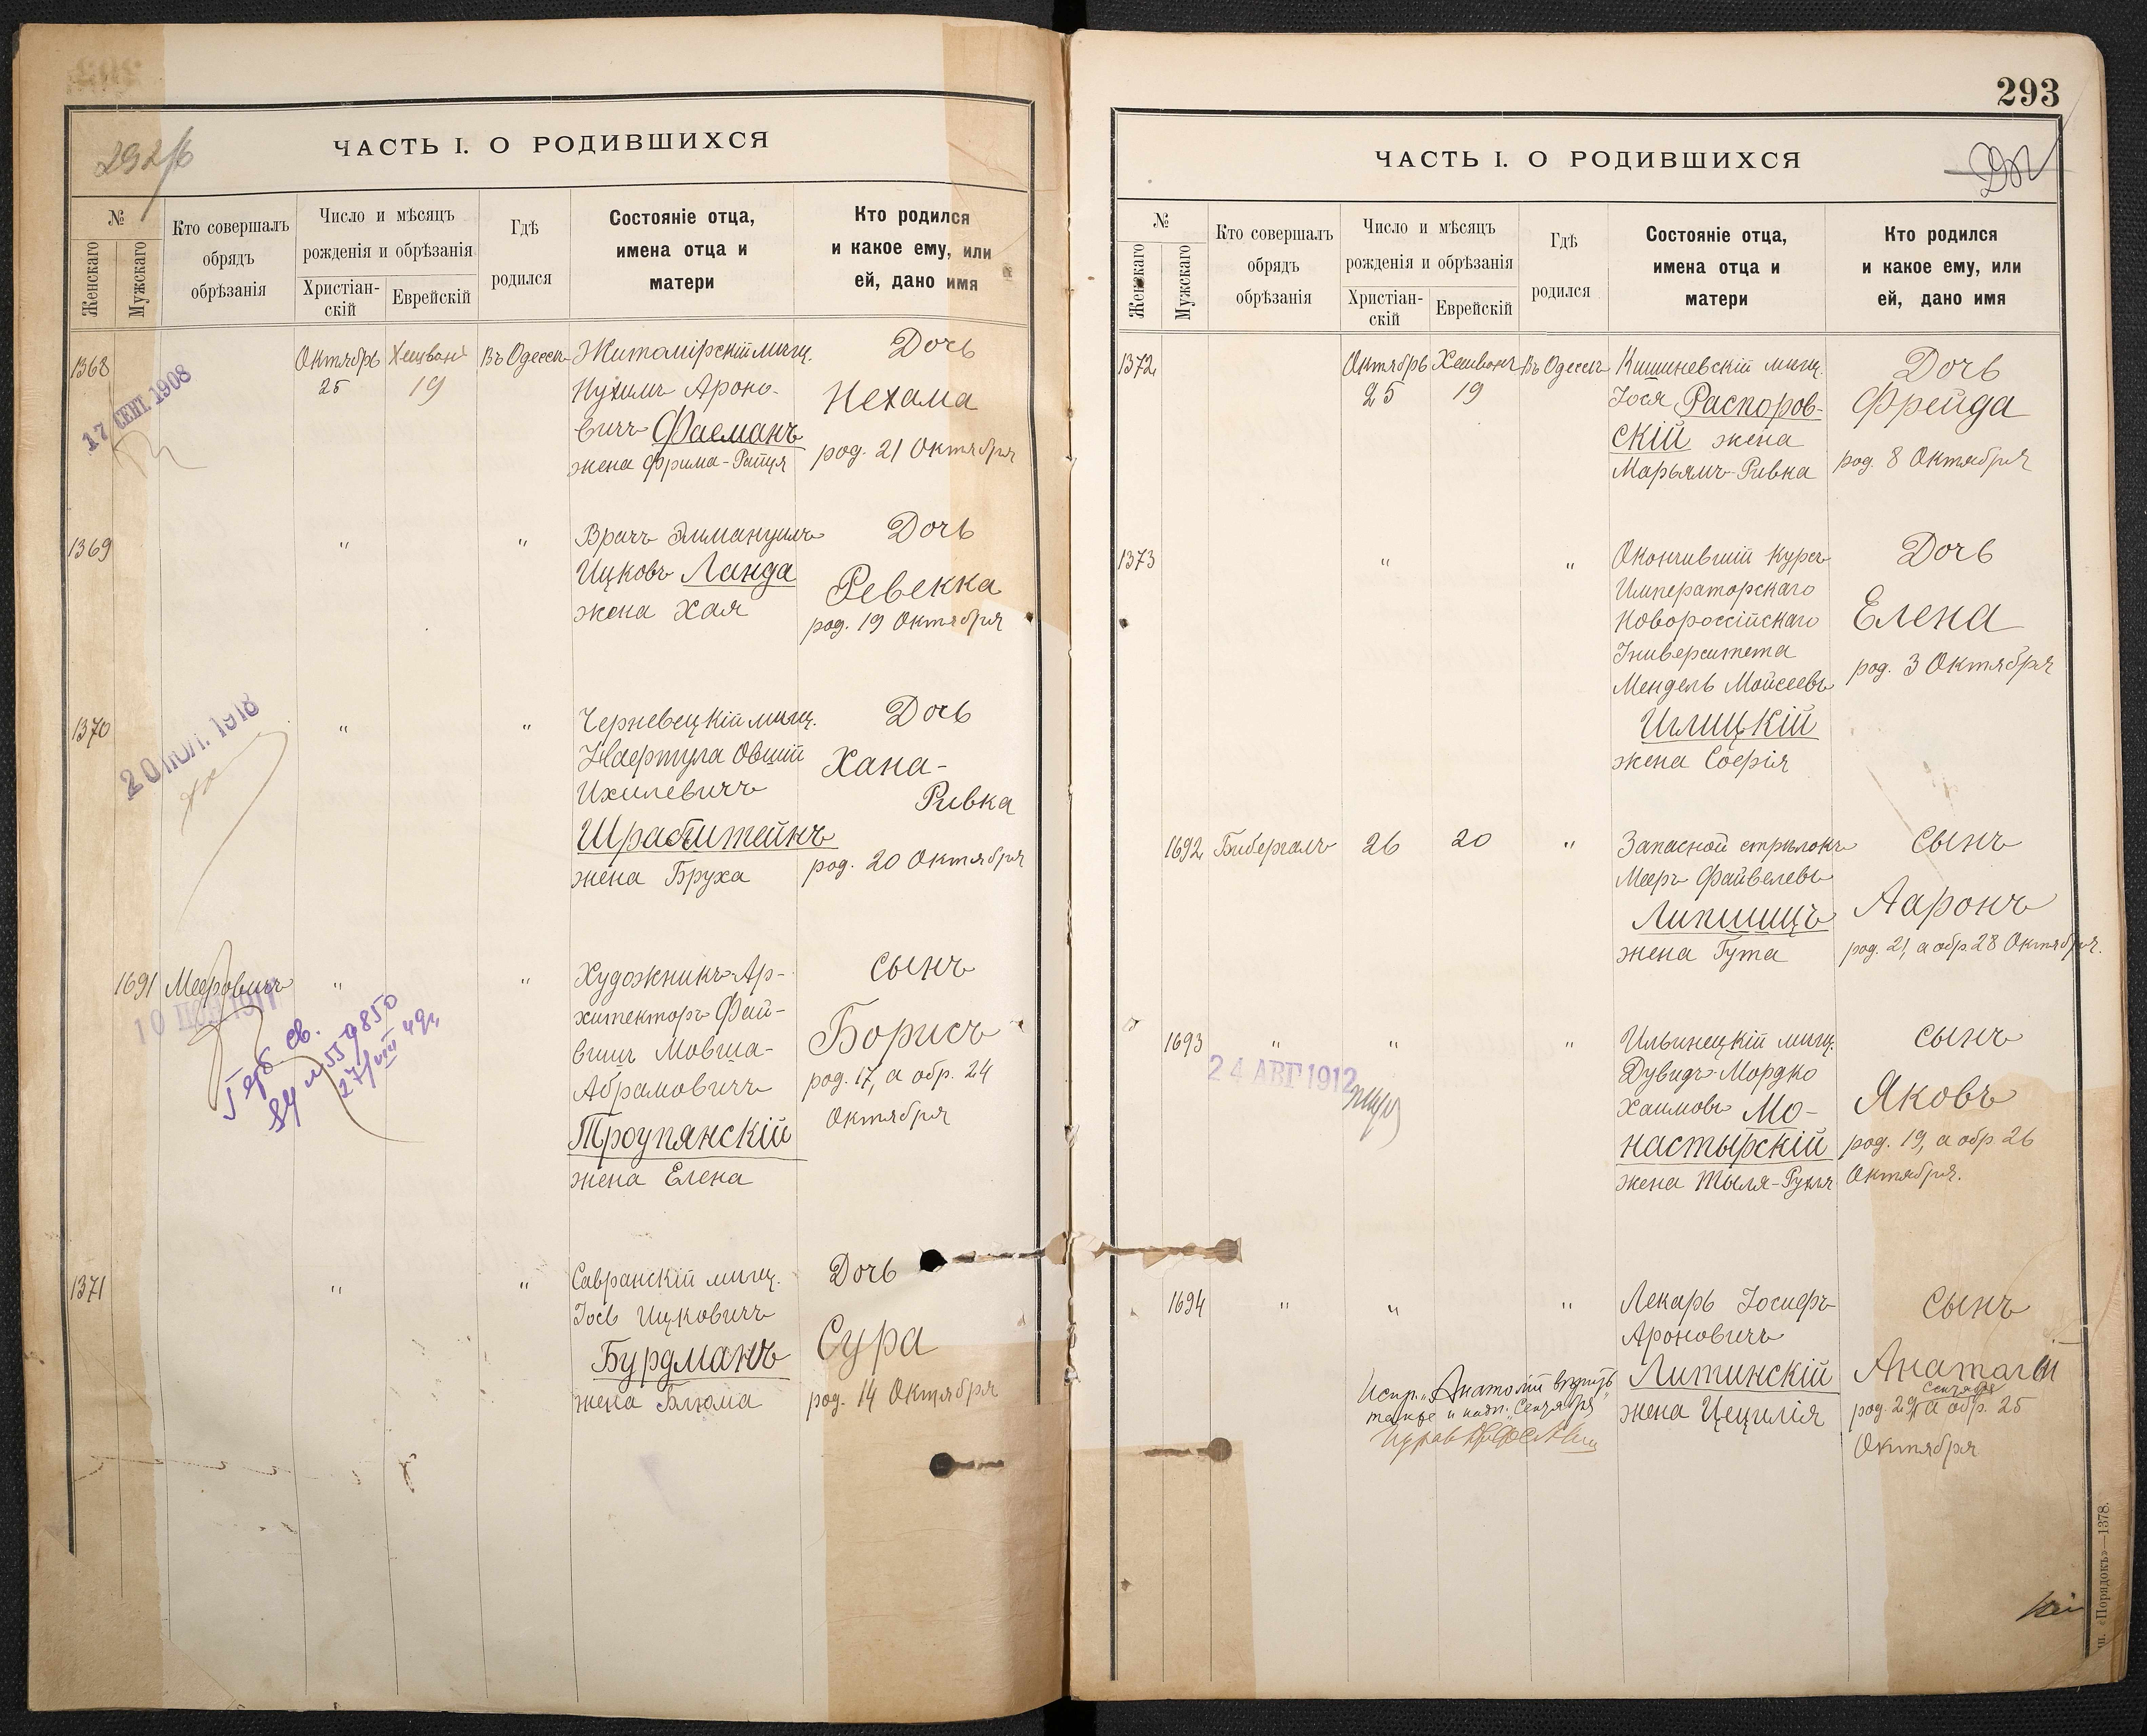 292/б
ЧАСТЬ I. О РОДИВШИХСЯ
№
Женскаго
Мужскаго
Кто совершалъ
обрядъ
обрѣзанія
Число и мѣсяцъ
рожденія и обрѣзанія
Христіан-
скій
Еврейскій
Гдѣ
родился
Состояніе отца,
имена отца и
матери
Кто родился
и какое ему, или
ей, дано имя
1368
17 СЕНТ. 1908
Октябрь
25
19
Въ Одессѣ
Житомірскій мѣщ.
Нухимъ Ароно-
вичъ Фасманъ
жена Фрима-
Дочь
Нехама
род. 21 Октября
1369
"
"
Врачъ Эммануилъ
Ицковъ Ланда
жена Хая
Дочь
Ревекка
род. 19 Октября
1370
20 ІЮЛ. 1918
"
"
Черневецкій мѣщ.
Нафтула Овший
Ихилевичъ
жена Бруха
Дочь
Хана-
Ривка
род. 20 Октября
1691
Мееровичъ
"
"
Художникъ-Ар-
хитекторъ Фай-
вишъ Мовша-
Абрамовичъ
Троупянскій
жена Елена
Сынъ
Борисъ
род. 17, а обр. 24
Октября
1371
"
"
Савранскій мѣщ.
Іось Ицковичъ
Бурдманъ
жена Блюма
Дочь
Сура
род. 14 Октября
293
ЧАСТЬ I. О РОДИВШИХСЯ
№
Женскаго
Мужскаго
Кто совершалъ
обрядъ
обрѣзанія
Число и мѣсяцъ
рожденія и обрѣзанія
Христіан-
скій
Еврейскій
Гдѣ
родился
Состояніе отца,
имена отца и
матери
Кто родился
и какое ему, или
ей, дано имя
1372
Октябрь
25
19
Въ Одессѣ
Кишиневскій мѣщ.
Іося Распоров-
скій жена
Марьямъ-Ривка
Дочь
Фрейда
род. 8 Октября
1373
"
"
Окончившій курсъ
Императорскаго
Новороссійскаго
Университета
Мендель Мойсеевъ
Иглицкій
жена Софія
Дочь
Елена
род. 3 Октября
1692
Бибергалъ
26
20
"
Запасной стрѣлокъ
Мееръ Файвелевъ
Липшицъ
жена Гута
Сынъ
Ааронъ
род. 21, а обр. 28 Октября.
1693
"
"
"
24 АВГ 1912
Ильинецкій мѣщ.
Дувидъ-Мордко
Хаимовъ Мо-
настырскій
жена Тыля-Рухля
Сынъ
Яковъ
род. 19, а обр. 26
Октября.
1694
"
"
"
Лекарь Іосифъ
Ароновичъ
Литинскій
жена Цецилія
Сынъ
Анатолій
Сентября
род. 29, а обр. 25
Октября
Испр. "Анатолій" вѣрить
также и надп. "Сентября"
п. «Порядокъ»—1378.